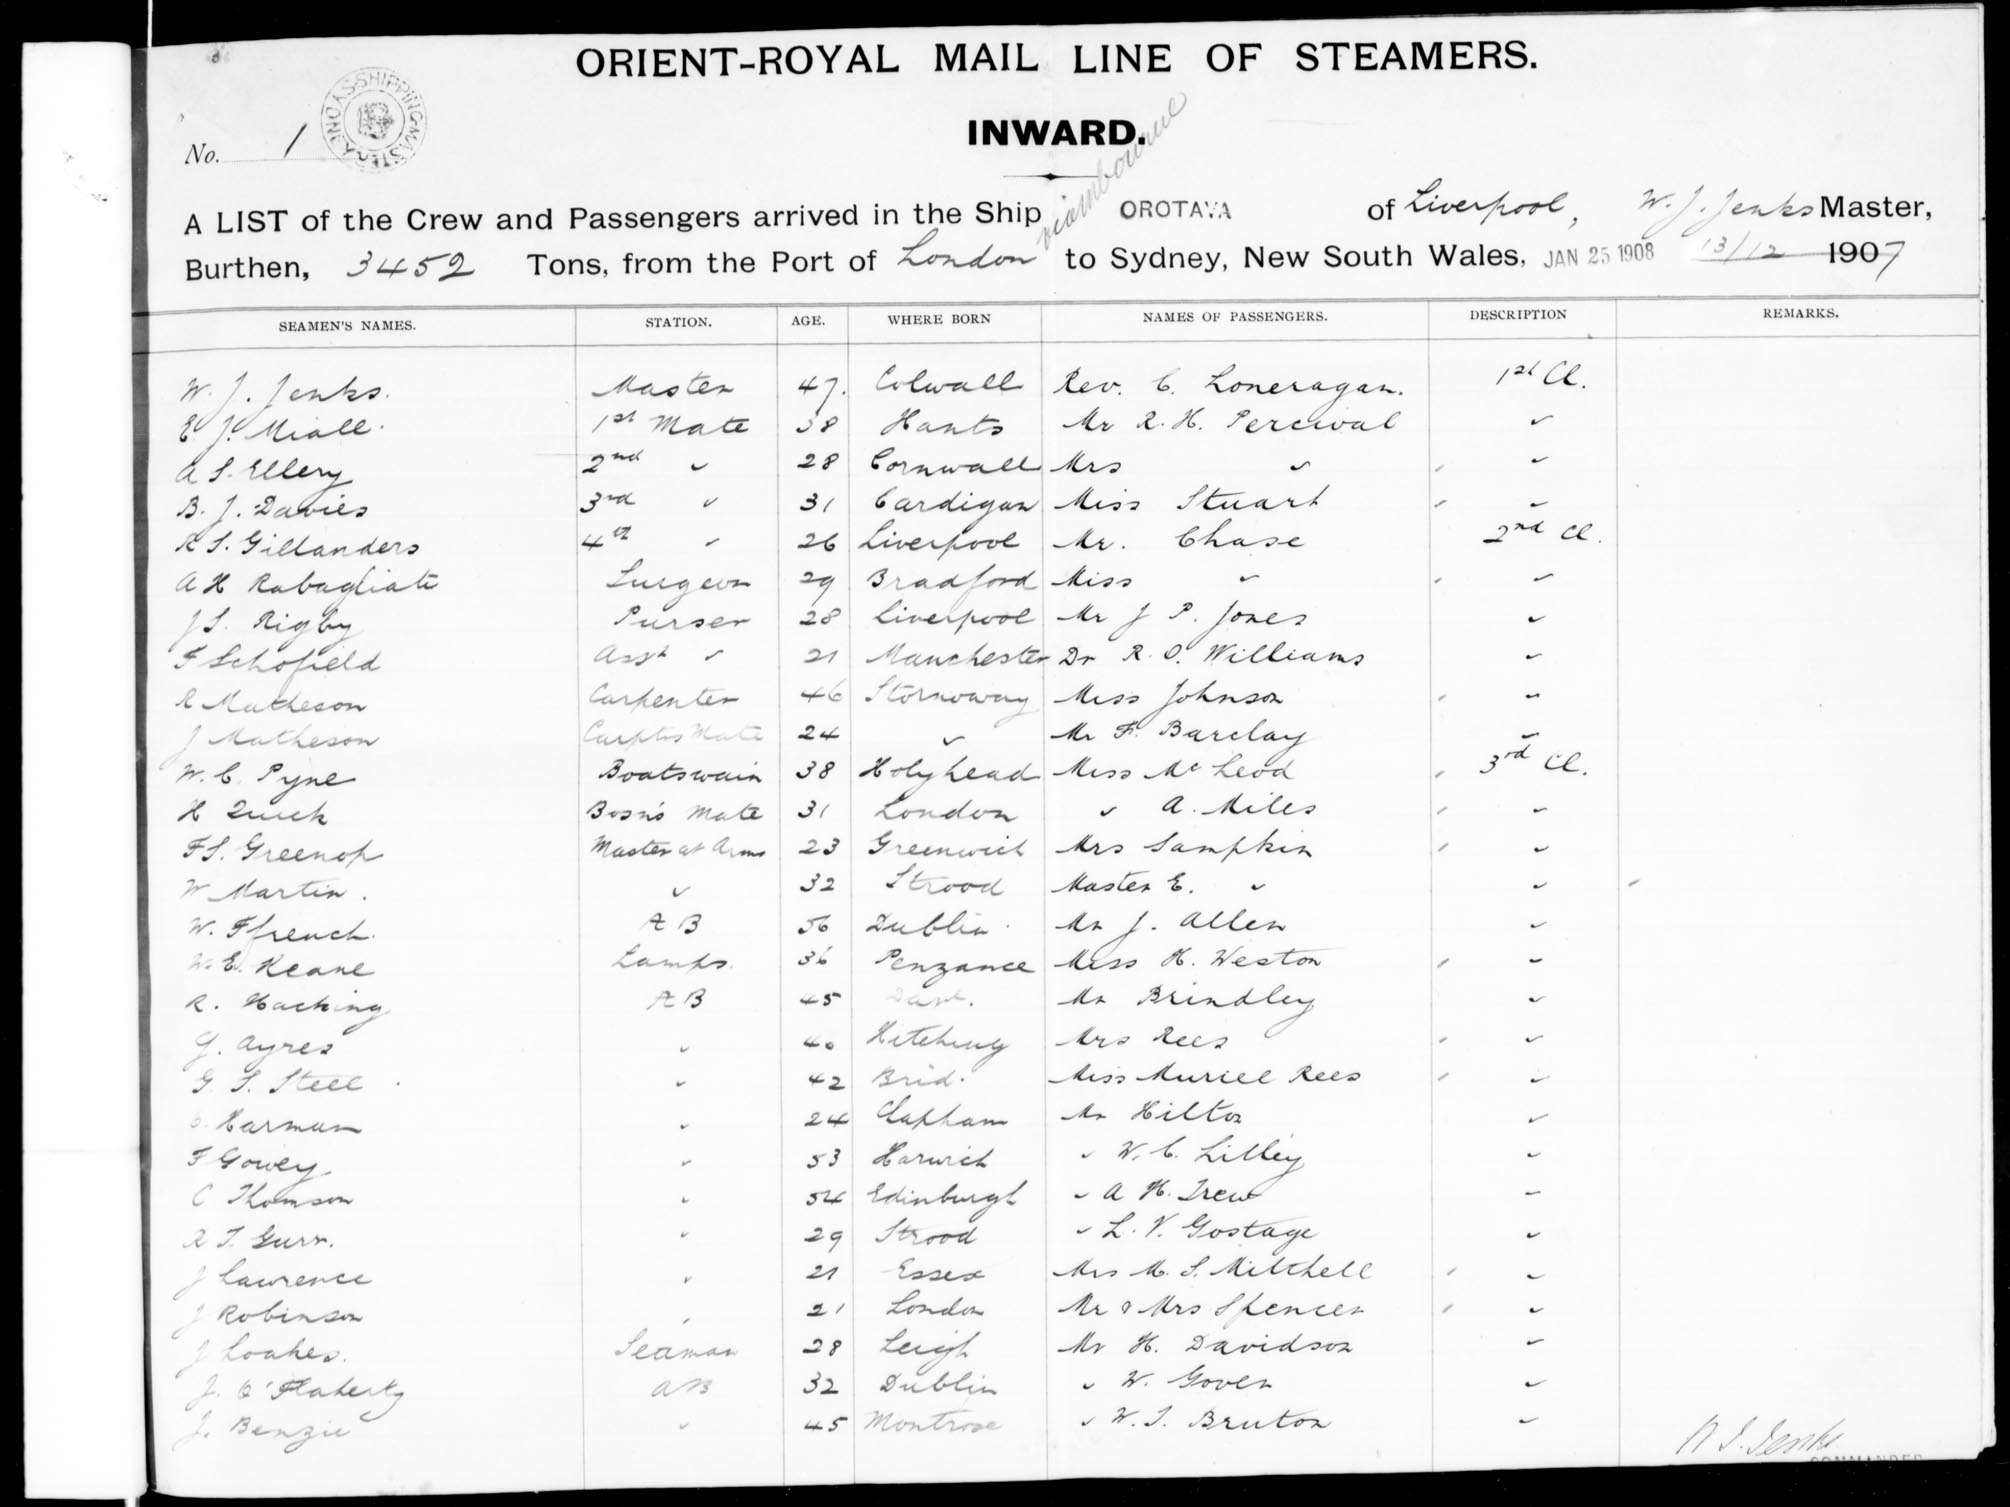 ORIENT-ROYAL MAIL LINE OF STEAMERS.
INWARD.
No. 1
SYDNEY SHIPPING MASTER
A LIST of the Crew and Passengers arrived in the Ship OROTAVA of Liverpool, W. J. Jenks Master,
Burthen, 3452 Tons, from the Port of London to Sydney, New South Wales, JAN 25 1908 13/12 1907
SEAMEN'S NAMES. STATION. AGE. WHERE BORN NAMES OF PASSENGERS. DESCRIPTION REMARKS.
W. J. Jenks. Master 47. Colwall Rev. C. Loneragan. 1st Cl.
E J. Miall. 1st Mate 38 Hants Mr R. H. Percival "
A S. Ellery 2nd " 28 Cornwall Mrs " "
B. J. Davies 3rd " 31 Cardigan Miss Stuart "
R S. Gillanders 4th " 26 Liverpool Mr. Chase 2nd Cl.
A H Rabagliati Surgeon 29 Bradford Miss " "
J S. Rigby Purser 28 Liverpool Mr J P. Jones "
F Schofield Asst " 21 Manchester Dr R. O. Williams "
R Matheson Carpenter 46 Stornoway Miss Johnson "
J Matheson Carptrs Mate 24 " Mr F. Barclay "
W. C. Pyne Boatswain 38 Holyhead Miss McLeod 3rd Cl.
H Quick Bosn's Mate 31 London " A. Miles "
F S. Greenop Master at Arms 23 Greenwich Mrs Lampkin "
W Martin. " 32 Strood Master E. " "
W. Ffrench. AB 56 Dublin Mr J. Allen "
W. E. Keane Lamps. 36 Penzance Miss H. Weston "
R. Hacking AB 45 Mr Brindley "
G. Ayres " 40 Mrs Rees "
G. S. Steel " 42 Brid. Miss Muriel Rees "
Harman " 24 Clapham Mr Hilton "
F Gowey " 53 Harwich " W. C. Lilley "
C Thomson " 54 Edinburgh " A H. Trew "
R T. Gurr. " 29 Strood " L. V. Gostage "
J Lawrence " 21 Essex Mrs M. S. Mitchell "
J Robinson " 21 London Mr & Mrs Spencer "
J Loakes. Seaman 28 Leigh Mr H. Davidson "
J. O'Flaherty AB 32 Dublin " W. Gover "
J. Benzie " 45 Montrose " W. T. Bruton "
COMMANDER